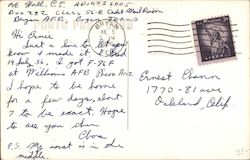 AL Wall, C.T. AD19356005
Box 202 Class 56-R Cadet Mail Room
Bryan AFB, Bryan Texas
Hi Ernie
Just a line to let you
know I made it. I
19 July 56. I got F-86F
at Williams AFB Phoex Ariz
I hope to be home
for a few days, about
7 to be exact. Hope
to see you then
P.S. My seat is in the
middle.
BRYAN
Ernest Chann
1770-81 ave
Oakland, Calif